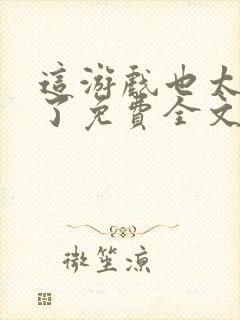 這游戲也太
了免費全文
微笙凉